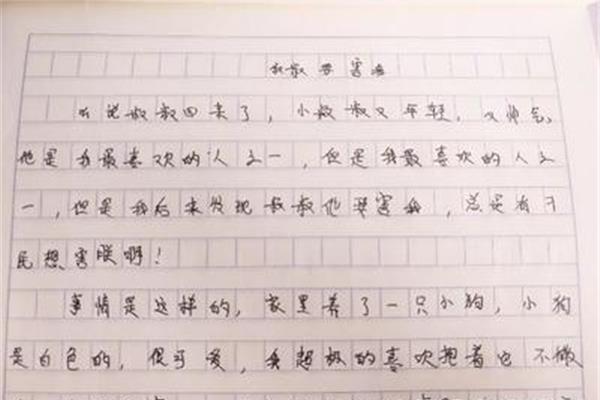 叔叔要害我
听说叔叔回来了，小叔叔又年轻，又帅气，
他是我最喜欢的人之一，但是我最喜欢的人之
一，但是我后来发现叔叔他要害我，总是有刁
民想害朕啊！
事情是这样的，家里养了一只小狗，小狗
是白色的，很可爱，我超级的喜欢抱着它不撒